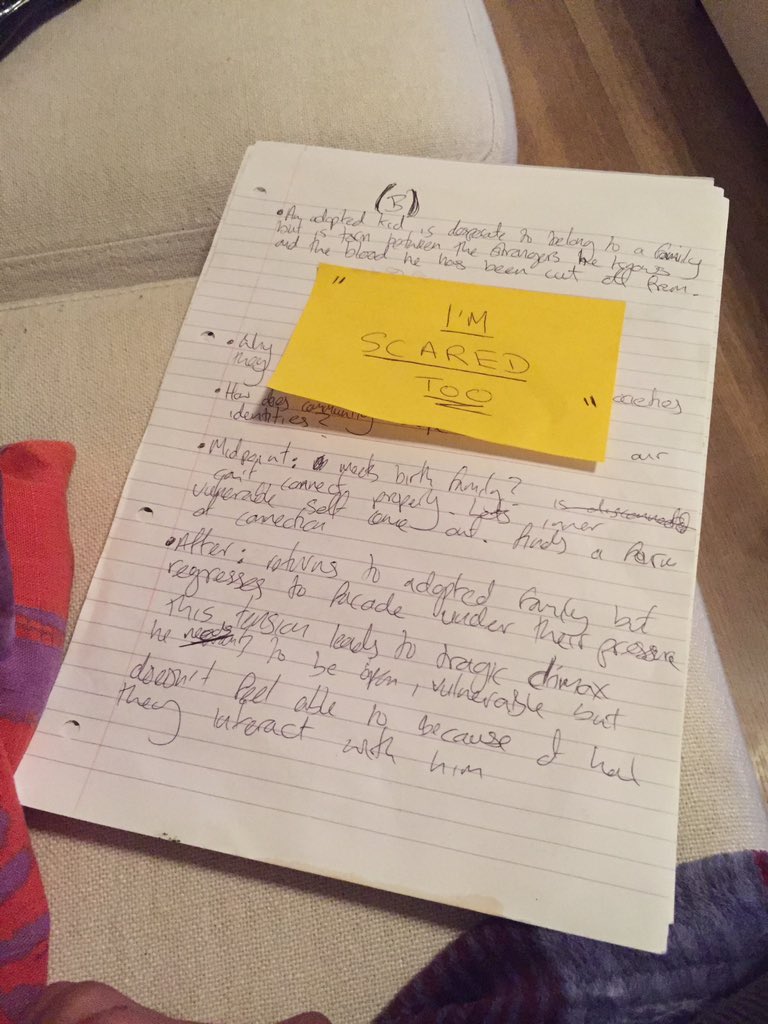 (B)
• An adopted kid is desperate to belong to a family
but is torn between the strangers he knows
and the blood he has been cut off from.
"
I'M
SCARED
TOO
"
• Why
they
• How does community
identities?
our
• Midpoint: meets birth family?
can't connect properly. inner
vulnerable self come out. finds a form
of connection
• After: returns to adopted family but
regresses to facade under their pressure
this tension leads to tragic climax
he needs? to be open, vulnerable but
doesn't feel able to because of how
they interact with him